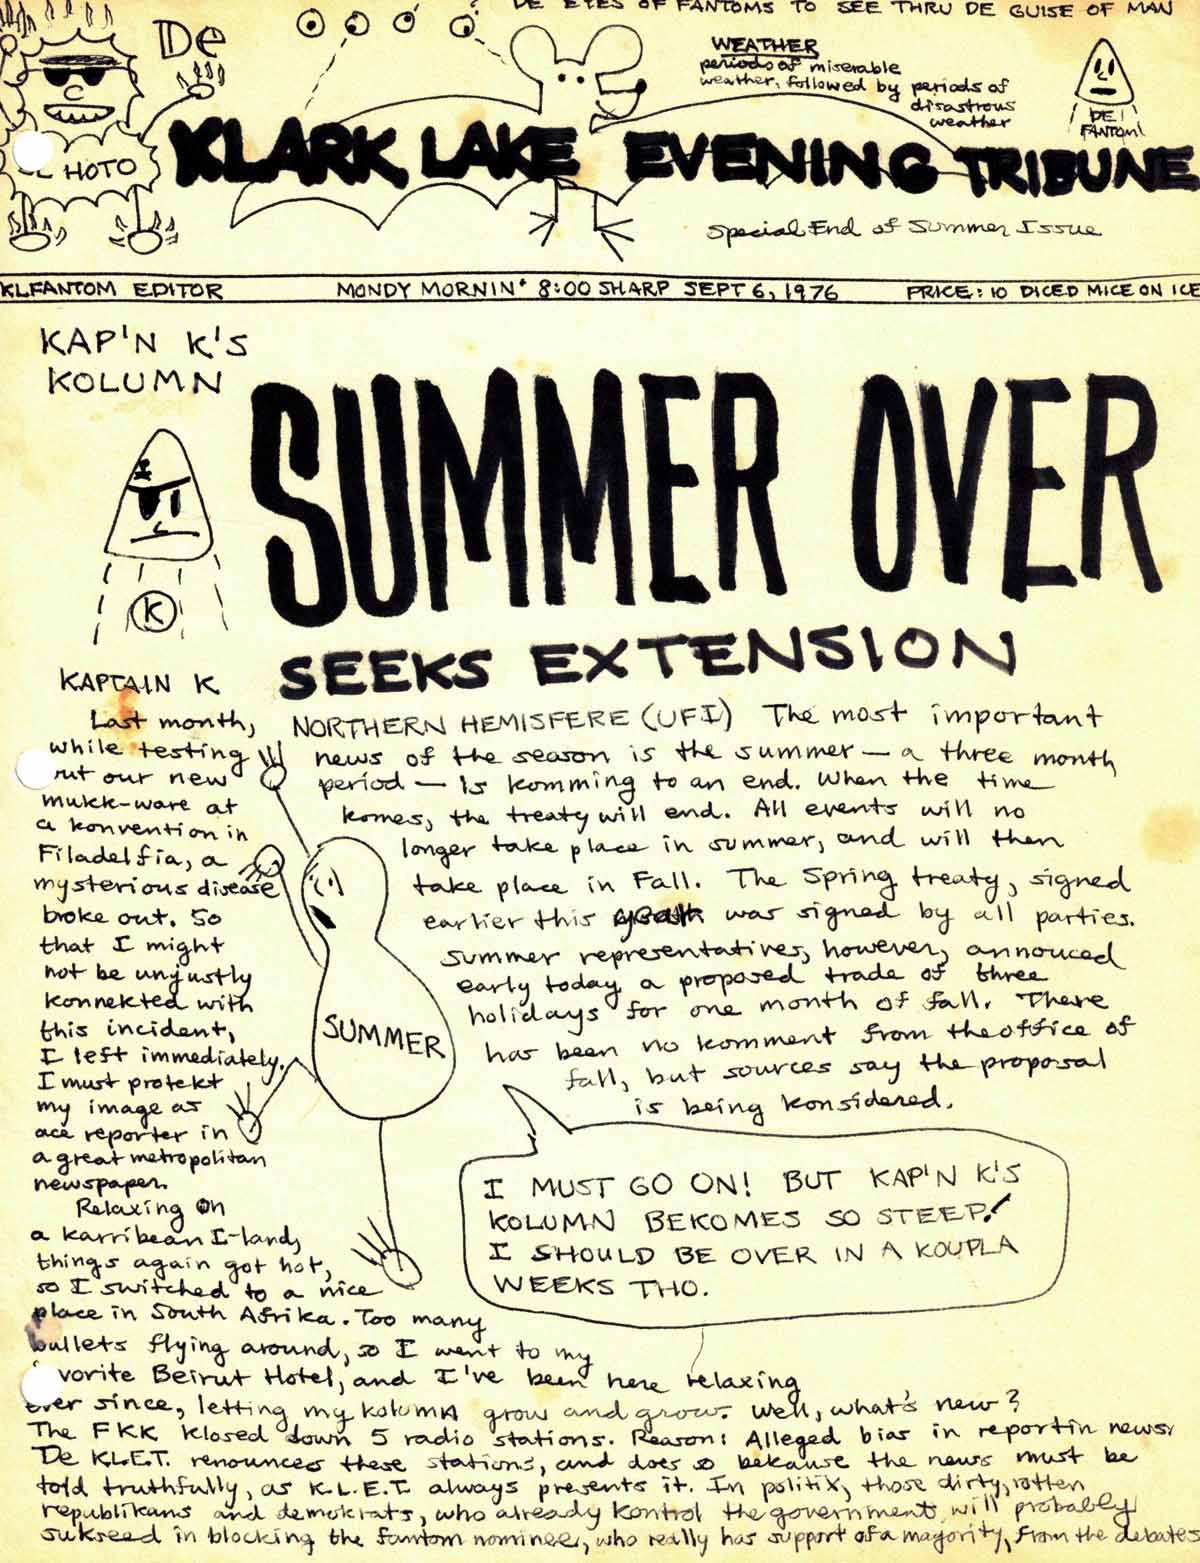 DE EYES OF FANTOMS TO SEE THRU DE GUISE OF MAN
De
WEATHER
periods of miserable
weather, followed by periods of
disastrous
weather
DE
FANTOM
HOTO
KLARK LAKE EVENING TRIBUNE
Special End of Summer Issue
KLFANTOM EDITOR MONDY MORNIN' 8:00 SHARP SEPT 6, 1976 PRICE: 10 DICED MICE ON ICE
KAP'N K'S
KOLUMN
SUMMER OVER
SEEKS EXTENSION
K
KAPTAIN K
Last month,
while testing
out our new
mukk-ware at
a konvention in
Filadelfia, a
mysterious disease
broke out. So
that I might
not be unjustly
konnekted with
this incident,
I left immediately.
I must protekt
my image as
ace reporter in
a great metropolitan
newspaper.
Relaxing on
a karribean I-land,
things again got hot,
so I switched to a nice
place in South Afrika. Too many
bullets flying around, so I went to my
favorite Beirut Hotel, and I've been here relaxing
ever since, letting my kolumn grow and grow. Well, what's new?
The FKK klosed down 5 radio stations. Reason: Alleged bias in reportin news.
De K.L.E.T. renounces these stations, and does so bekause the news must be
told truthfully, as K.L.E.T. always presents it. In politix, those dirty, rotten
republikans and demokrats, who already kontrol the government, will probably
sukseed in blocking the fantom nominee, who really has support of a magority, from the debates
NORTHERN HEMISFERE (UFI) The most important
news of the season is the summer — a three month
period — is komming to an end. When the time
komes, the treaty will end. All events will no
longer take place in summer, and will then
take place in Fall. The Spring treaty, signed
earlier this was signed by all parties.
Summer representatives, however, annouced
early today a proposed trade of three
holidays for one month of fall. There
has been no komment from the office of
fall, but sources say the proposal
is being konsidered.
SUMMER
I MUST GO ON! BUT KAP'N K'S
KOLUMN BEKOMES SO STEEP!
I SHOULD BE OVER IN A KOUPLA
WEEKS THO.